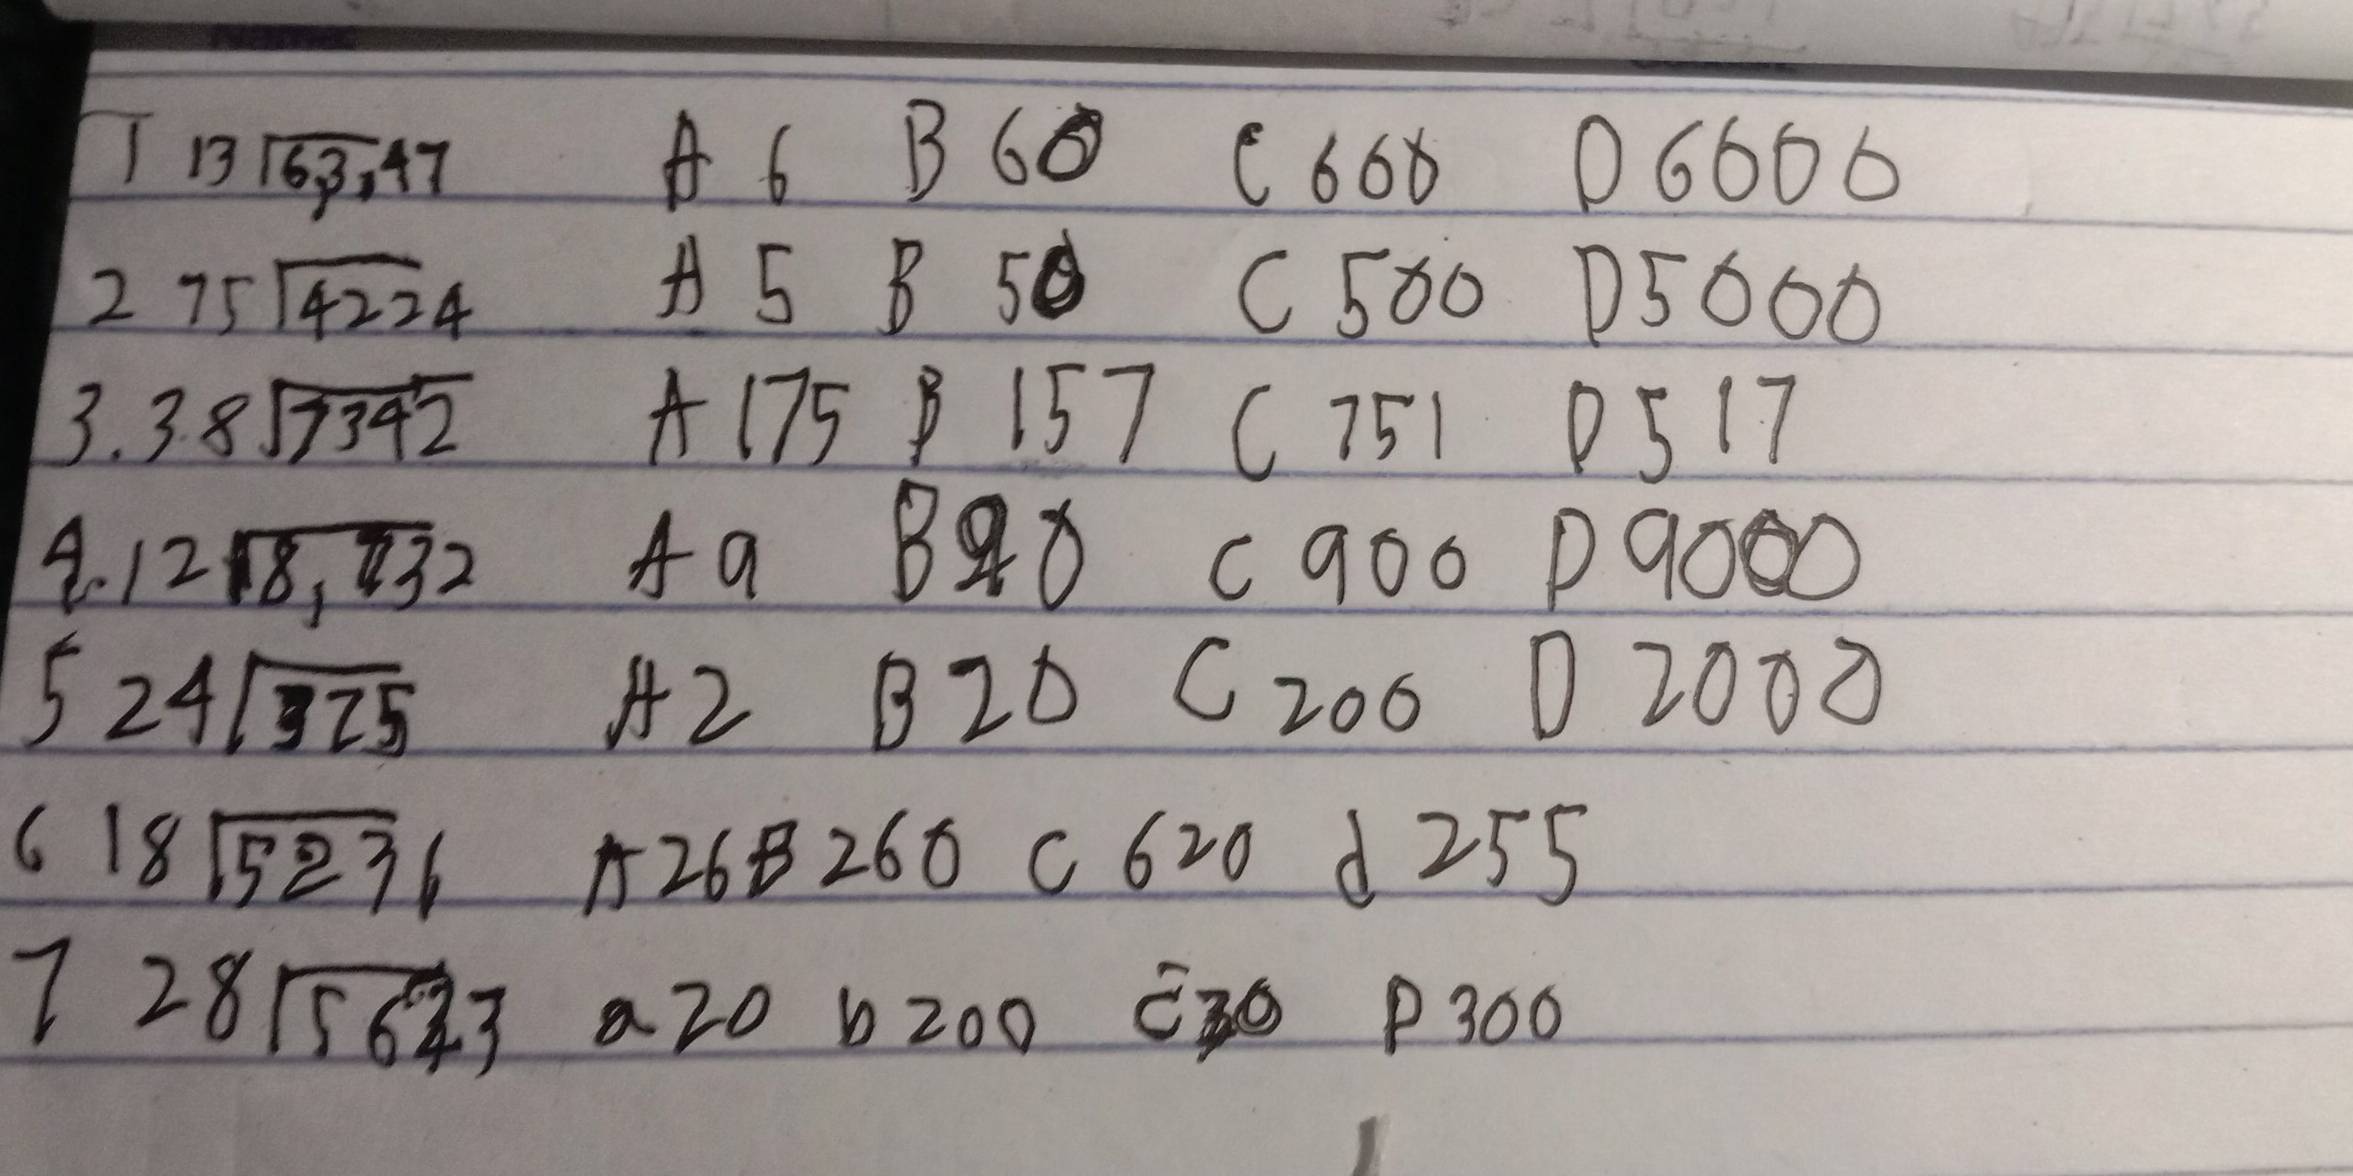 1 13 63,47 A 6 B 60 C 600 D 6000
2 75 4224 A 5 B 50 C 500 D 5000
3. 38 7342 A 175 B 157 C 751 D 517
4. 12 8,732 A 9 B 90 C 900 D 9000
5 24 375 A 2 B 20 C 200 D 2000
6 18 5236 A 26 B 260 C 620 d 255
7 28 a 20 b 200 C 30 D 300